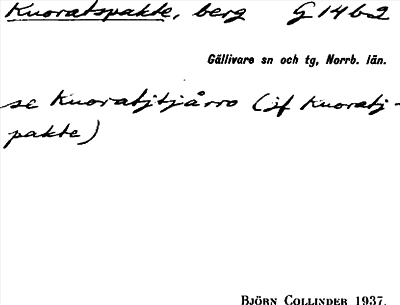 Kuoratspakte, berg G 14 b2
Gällivare sn och tg, Norrb. län.
se Kuoratjtjårro (jf Kuoratj-
pakte)
BJÖRN COLLINDER 1937.